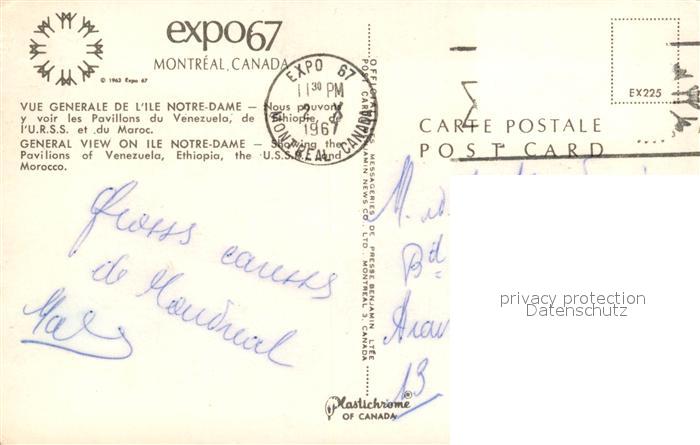 expo67
MONTRÉAL, CANADA
© 1963 Expo 67
VUE GENERALE DE L'ILE NOTRE-DAME — Nous pouvons
y voir les Pavillons du Venezuela, de l'Ethiopie, de
l'U.R.S.S. et du Maroc.
GENERAL VIEW ON ILE NOTRE-DAME — Showing the
Pavilions of Venezuela, Ethiopia, the U.S.S.R. and
Morocco.
EXPO 67
11 30 PM
1967
MONTREAL CANADA
de Montreal
OFFICIAL
POST CARD
MESSAGERIES DE PRESSE BENJAMIN LTÉE
BENJAMIN NEWS CO., LTD., MONTREAL 3, CANADA
Plastichrome®
OF CANADA
EX225
CARTE POSTALE
POST CARD
M.
Bd
13
privacy protection
Datenschutz